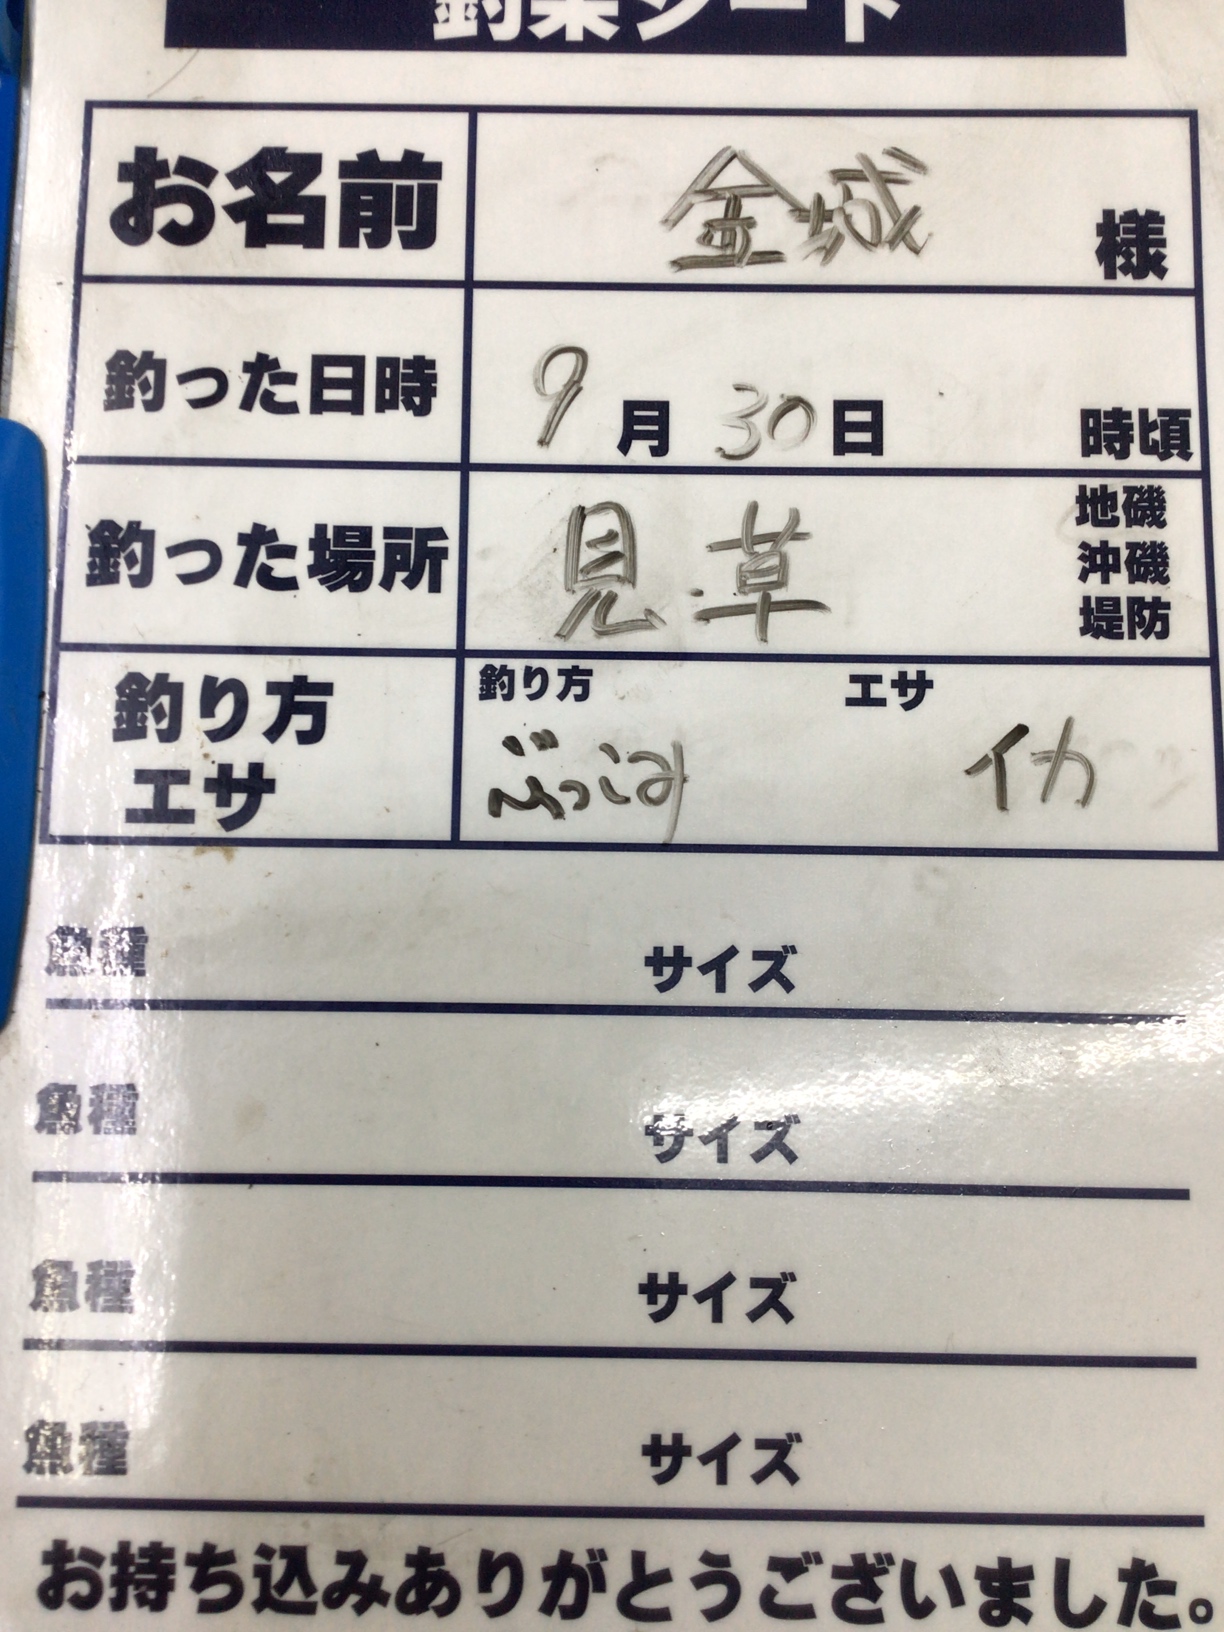 釣果シート
お名前 金城 様
釣った日時 9月30日 時頃
釣った場所 見草 地磯
沖磯
堤防
釣り方 エサ
釣り方 ぶっこみ エサ イカ
魚種 サイズ
魚種 サイズ
魚種 サイズ
魚種 サイズ
お持ち込みありがとうございました。